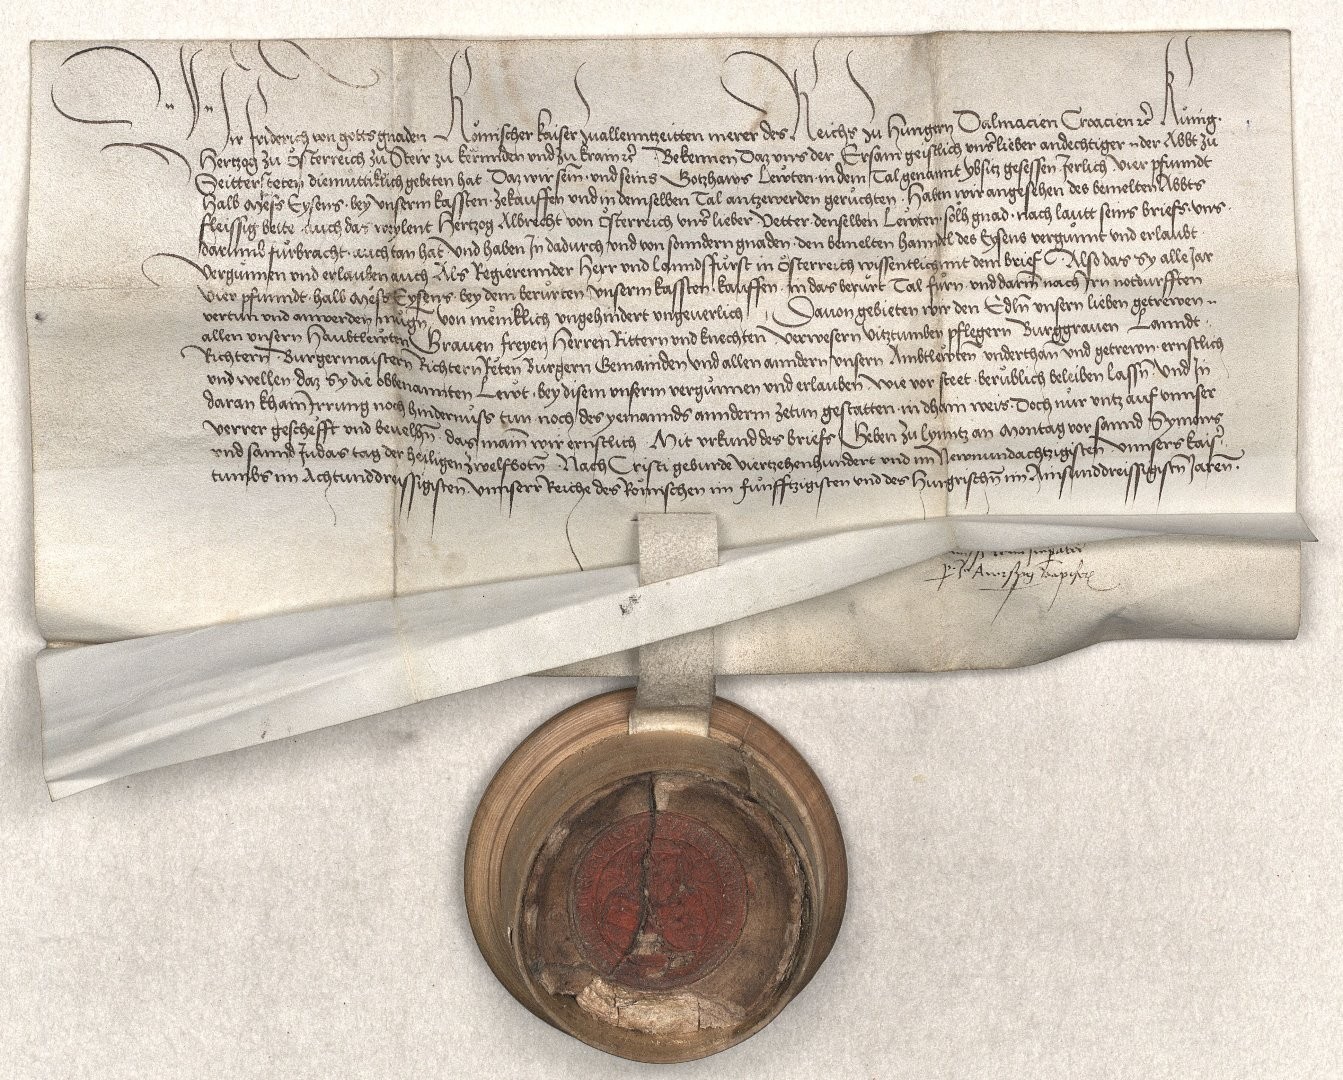 Wir Friderich von gottsgnaden Römischer kaiser zuallenntzeitten merer des Reichs zu Hungern Dalmacien Croacien etc Kunig
Hertzog zu Österreich zu Steir zu kernnden und zu krain etc Bekennen Daz uns der Ersam geistlich unser lieber andechtiger n der Abbt zu
Seittersteten diemuttiklich gebeten hat Daz wir sein und seins Gotzhaws Lewten in dem Tal genannt Ybsitz gesessen Jerlich Vier pfunndt
halb Mess Eysens bey unserm kassten zekauffen und in demselben Tal antzewerden geruchten Haben wir angesehen des bemelten Abbts
fleissig bette auch daz weylent Hertzog Albrecht von Österreich unser lieber Vetter denselben Lewten solh gnad nach lautt seins briefs uns
darumb furbracht auch tan hat und haben In dadurch und von sonndern gnaden den bemelten hanndel des Eysens vergunnt und erlaubt
Vergunnen und erlauben auch Als Regierennder Herr und Lanndsfurst in Österreich wissentlich mit dem brief Also daz sy alle Jar
vier pfunndt halb Mess Eysens bey dem berurten unserm kassten kauffen in das berurt Tal furn und darinn nach Irn notdurfften
vertun und anwerden mugn von meniklich ungehindert ungeverlich Davon gebieten wir den Edln unsern lieben getrewen n
allen unsern Haubtlewten Graven freyen Herren Rittern und knechten Verwesern Vitztumben pflegern Burggraven Lanndt
Richtern Burgermaistern Richtern Reten Burgern Gemainden und allen anndern unsern Ambtlewten underthan und getrewn ernstlich
und wellen daz sy die obbenannten Lewt bey disem unserm vergunnen und erlauben wie vor steet berublich beleiben lassn und In
daran khain Irrung noch hindernuss tun noch des yemannds annderm zetun gestatten in dhain weis Doch nur untz auf unnser
verrer geschefft und bevelhn das main wir ernstlich Mit urkund des briefs Geben zu Lynntz an Montag vor sannd Symons
und sannd Judas tag der heiligen zwelfbotn Nach Cristi geburde Viertzehenhundert und im Newnundachtzigisten Unnsers kais
tumbs im Achtunddreissigisten Unnserr Reiche des Römischen im funfftzigisten und des Hungrischn im Ainsunddreissigistn Jaren